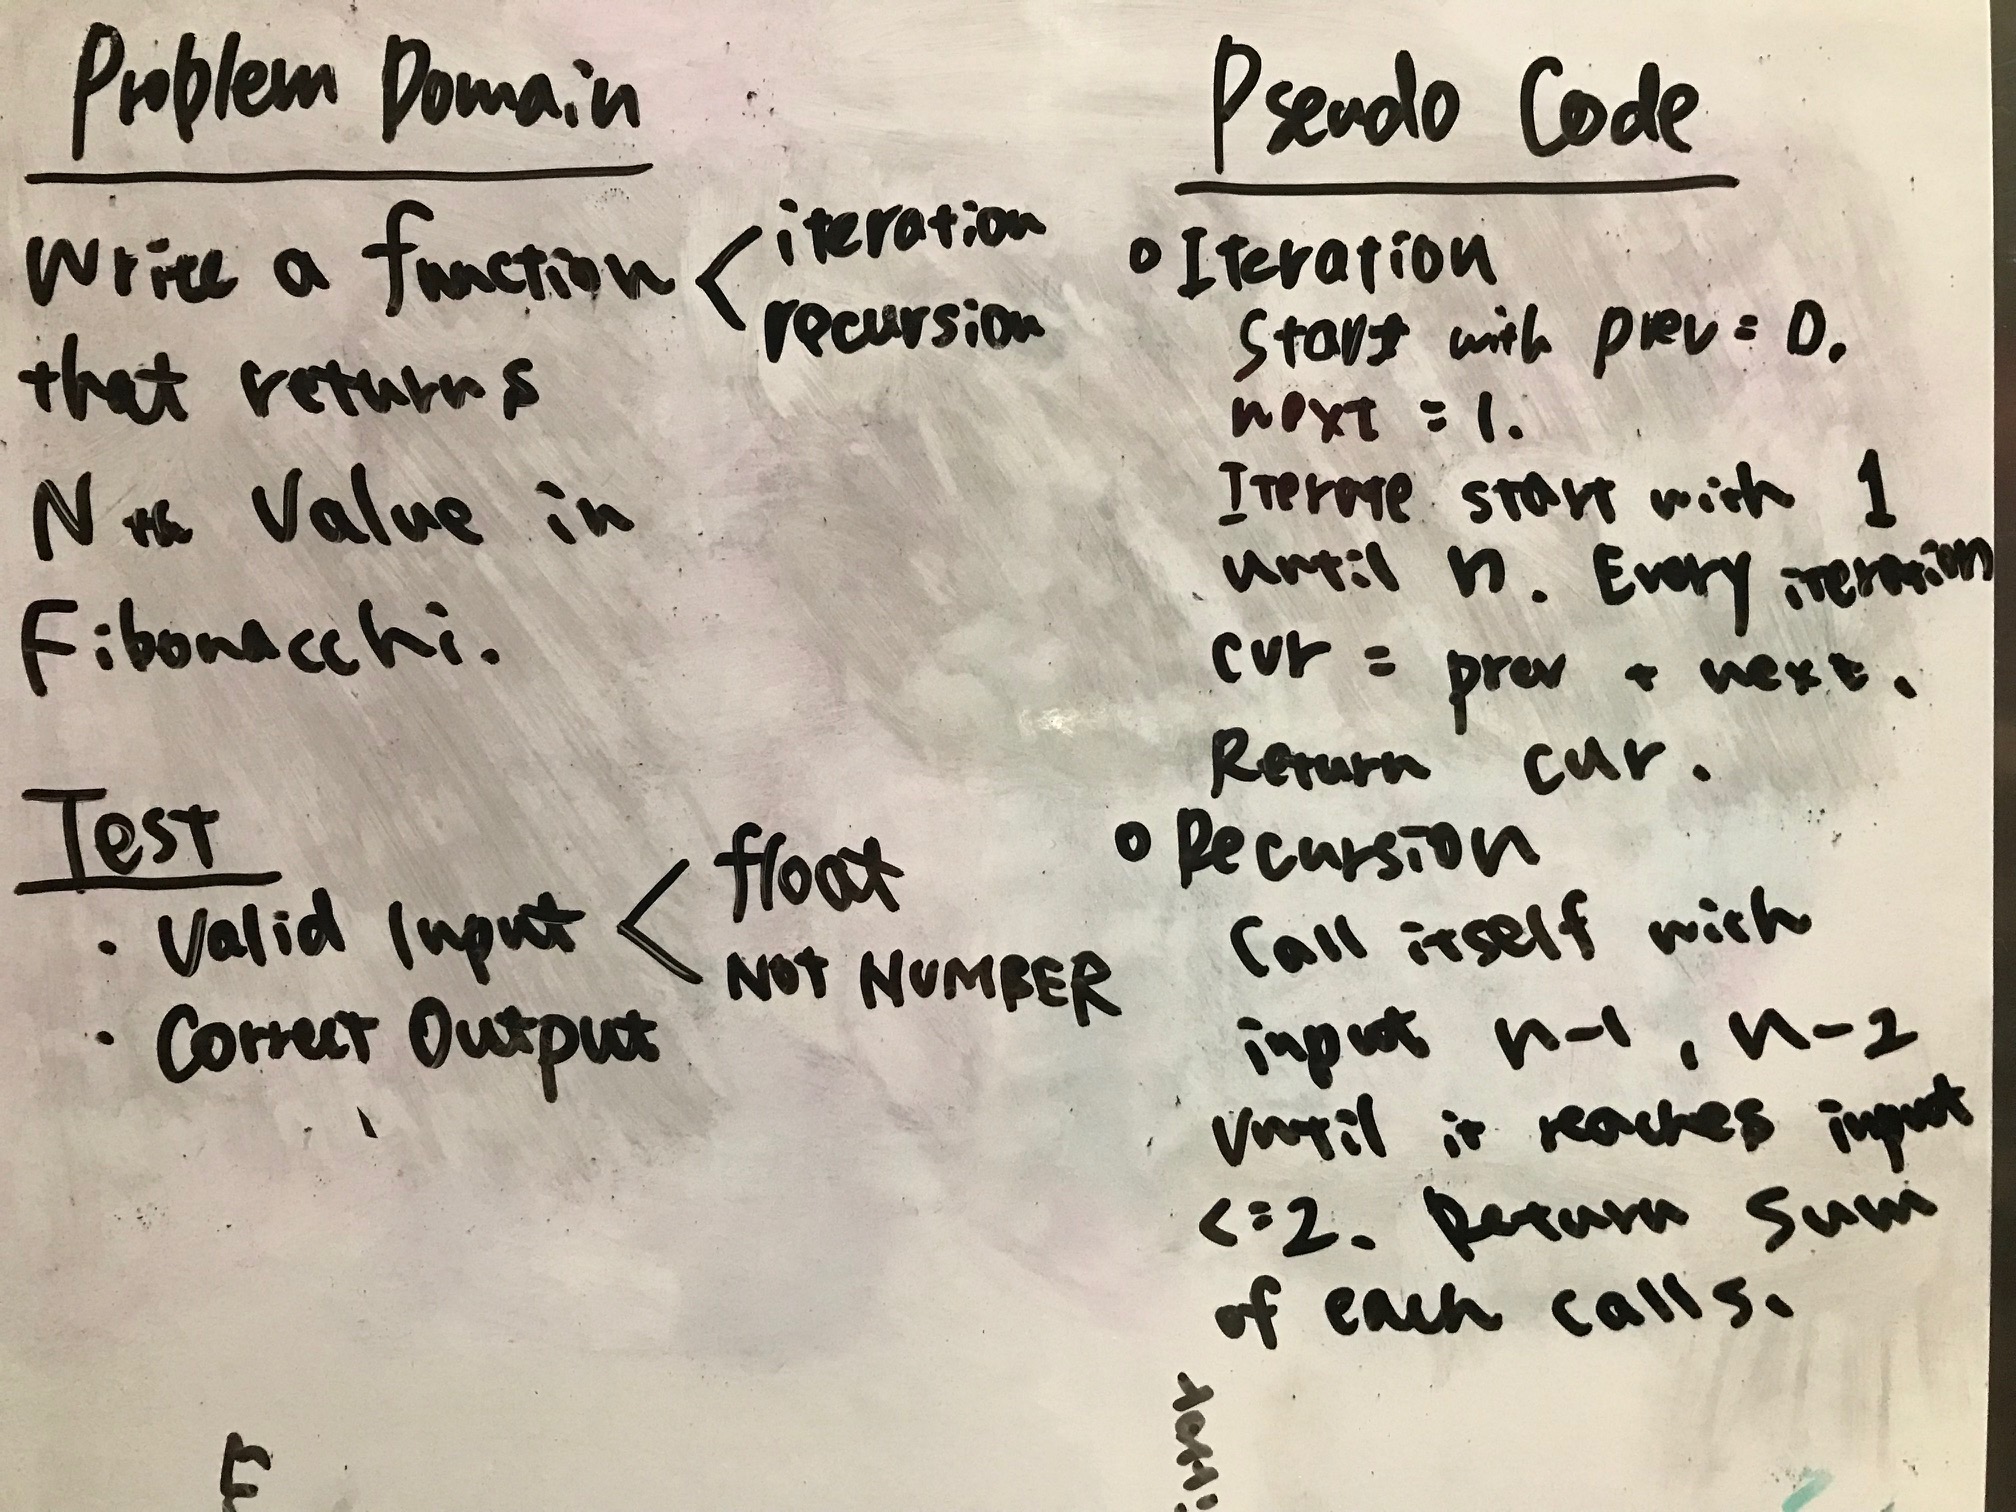 Problem Domain
Write a function < iteration
recursion
that returns
Nth Value in
Fibonacchi.
Test
· Valid Input < float
NOT NUMBER
· Correct Output
Pseudo Code
o Iteration
Start with prev = 0.
next = 1.
Iterate start with 1
until n. Every iteration
cur = prev + next.
Return cur.
o Recursion
Call itself with
input n-1, n-2
until it reaches input
<=2. Return sum
of each calls.